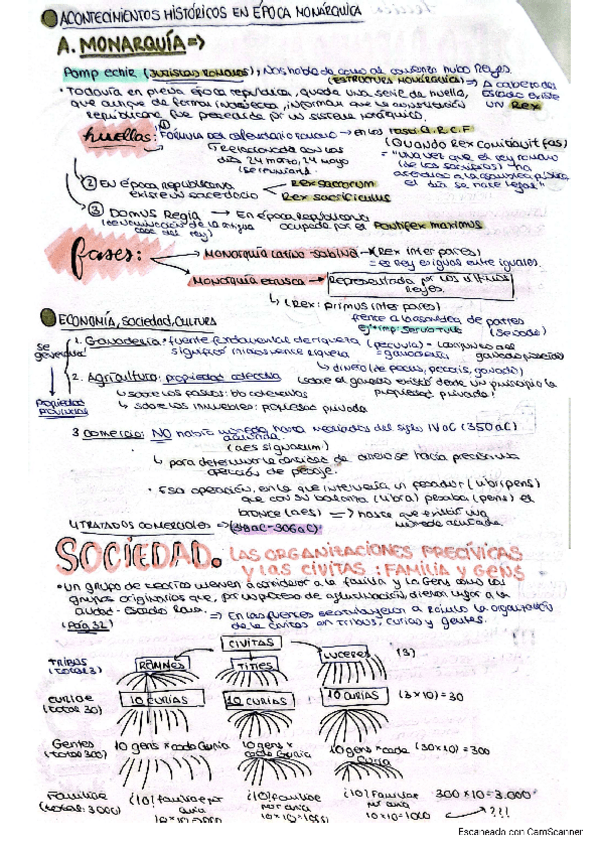 ACONTECIMIENTOS HISTÓRICOS EN ÉPOCA MONÁRQUICA
A. MONARQUÍA =>
(JURISTAS ROMANOS), Nos habla de como al comienzo hubo Reyes.
(ESTRUCTURA MONÁRQUICA) => A cabeza del Estado existe un Rex
• Todavía en plena época republicana, queda una serie de huella,
que aunque de forma indirecta, informan que la constitución
republicana fue precedida por un sistema monárquico.
huellas:
① FÓRMULA del calendario romano → en los fastos Q.R.C.F
(QUANDO Rex Comitiavit fas)
relacionada con los
días 24 marzo, 24 mayo
= "una vez que el rey romano
(de los sacrificios) ha
el día se hace
② En época republicana
existe un sacerdocio
Rex sacrorum
Rex sacrificulus
③ Domus Regia → En época Republicana
ocupada por el Pontifex maximus
(denominación de la antigua
casa del rey)
fases:
MONARQUÍA Latino-sabina → (Rex inter pares)
= es Rey es igual entre iguales.
MONARQUÍA etrusca → Representada por los últimos
Reyes.
↳ (Rex: primus inter pares)
frente a la asamblea de patres
ej: Servio Tulio
ECONOMÍA, sociedad, cultura
se
1. Ganadería: fuente fundamental de riqueza (pecunia)
= ganadería
↳ dinero (de pecus, pecoris, ganado)
2. Agricultura: propiedad colectiva (sobre el ganado existió desde un principio la
propiedad privada)
↳ sobre los pastos:
↳ sobre los inmuebles: propiedad privada
3 Comercio: NO había moneda hasta mediados del siglo IV aC (350 aC)
acuñada.
(aes signatum)
↳ para determinar la cantidad de se hacía precisa una
operación de pesaje.
• Esa operación, en la que intervenía un pesador (libripens)
que con su balanza (libra) pesaba (pens) el
bronce (aes) => hasta que existió una
moneda acuñada.
4 TRATADOS COMERCIALES => (348 aC-306 aC)
SOCIEDAD. LAS ORGANIZACIONES PRECÍVICAS
Y LAS CIVITAS: FAMILIA Y GENS
• Un grupo de teóricos vienen a considerar a la familia y la Gens como los
grupos originarios que, por un proceso de aglutinación, dieron lugar a la
ciudad-estado Roma.
=> En las fuentes se atribuyen a Rómulo la organización
de la civitas en tribus, curias y gentes.
(Pág 32)
CIVITAS
TRIBUS
(total 3)
RAMNES
TITIES
LUCERES
(3)
CURIAE
(total 30)
10 CURIAS
10 CURIAS
10 CURIAS
(3×10) = 30
Gentes
(total 300)
10 gens × cada Curia
10 gens × cada Curia
10 gens × cada Curia
(30×10) = 300
Familiae
(total: 3000)
¿10? familiae por
curia
10×10=1000
¿10? Familiae
por curia
10×10=1000
¿10? Familiae
por curia
10×10=1000
300×10=3.000
→ ?!!
Escaneado con CamScanner